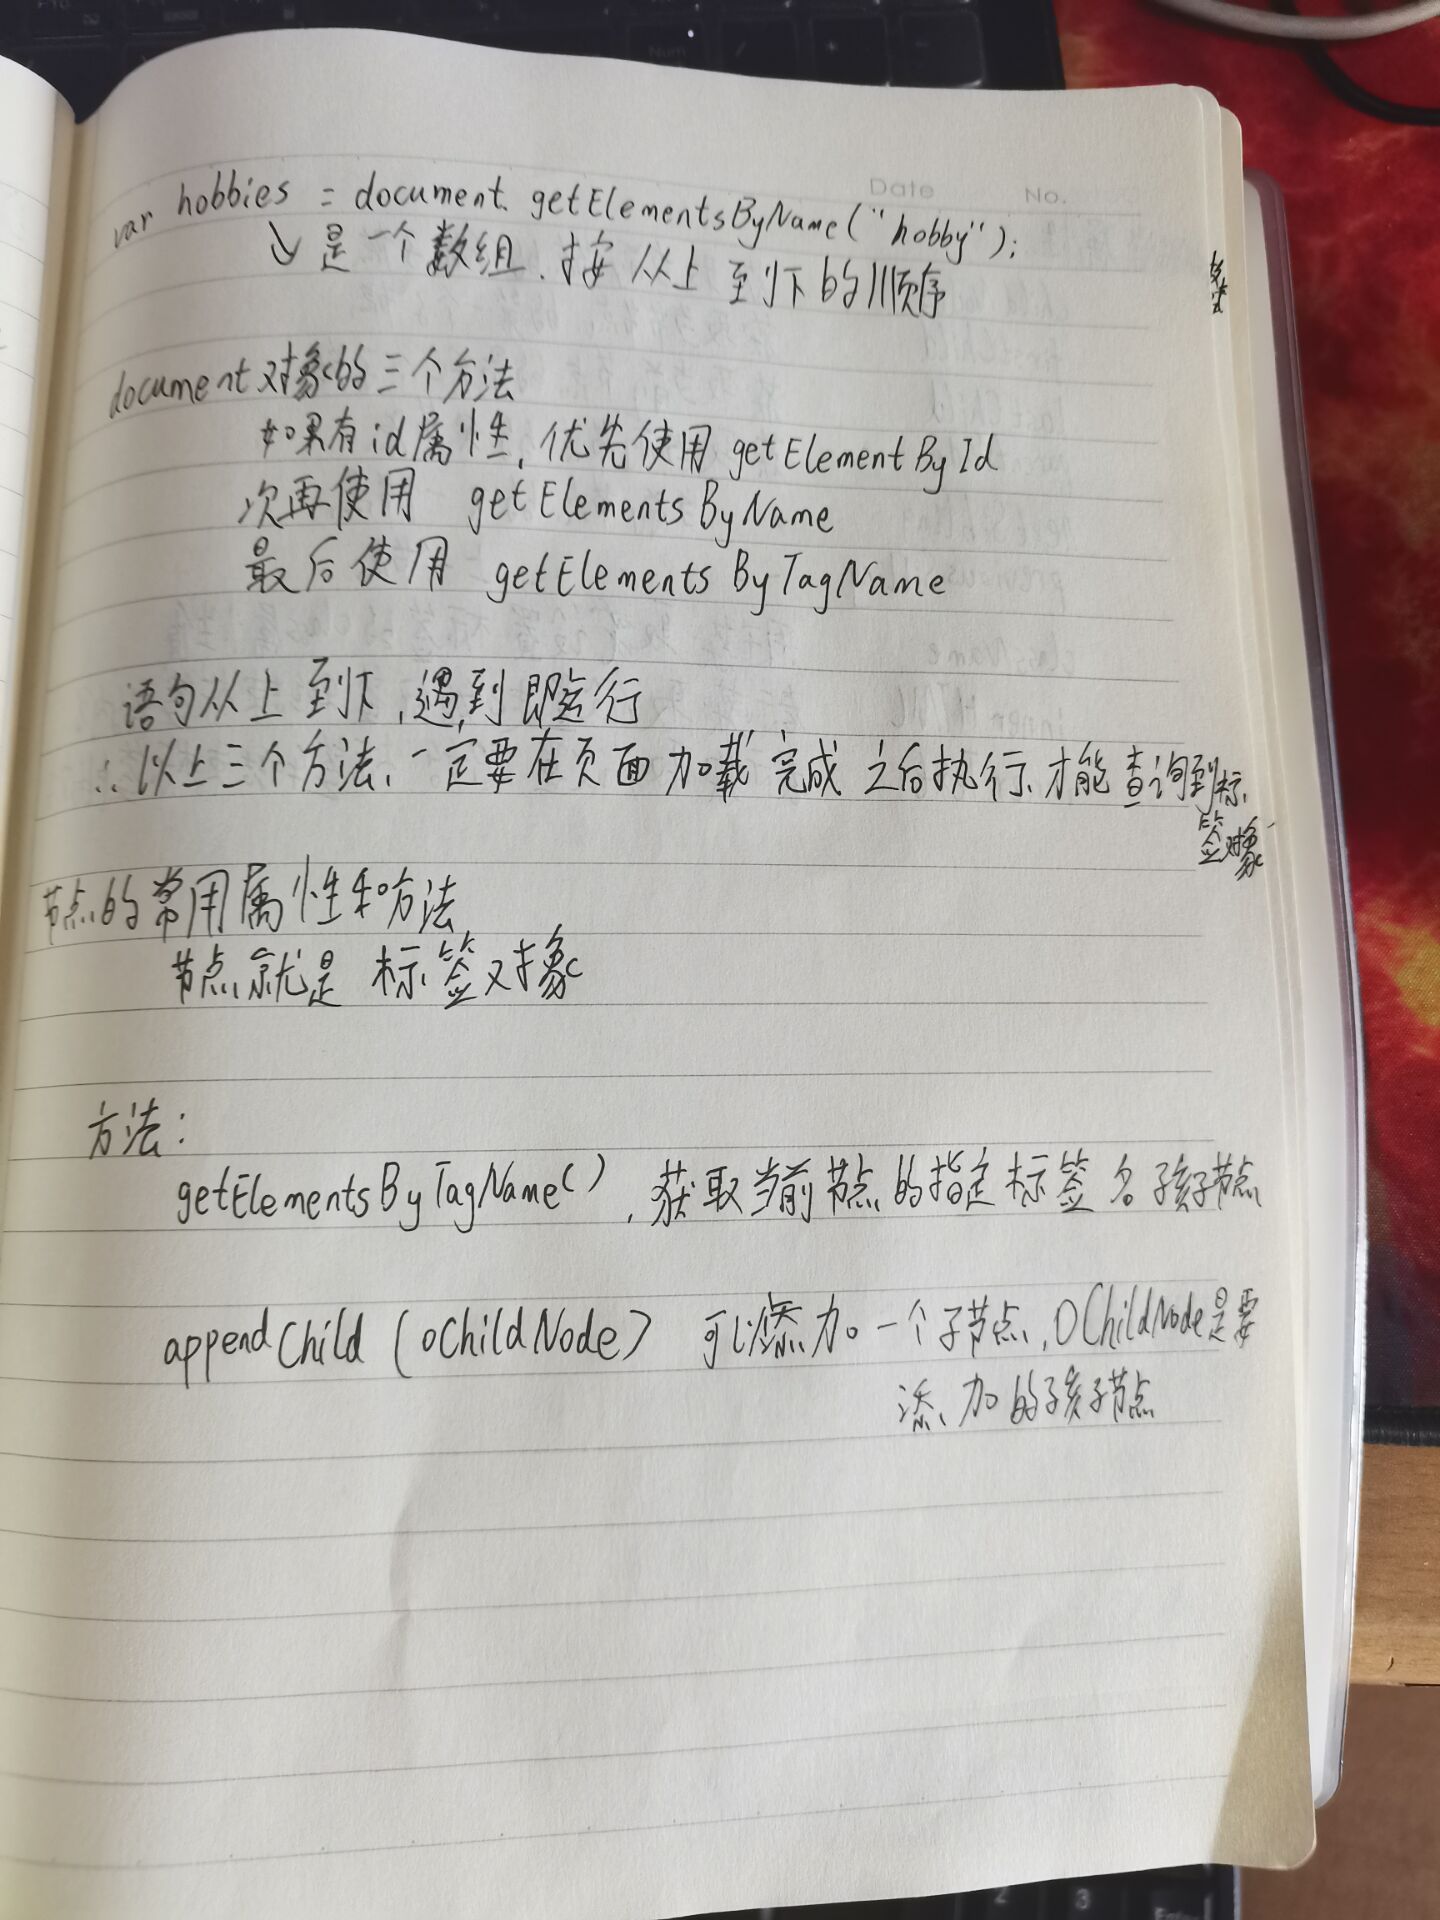 Date No.
var hobbies = document.getElementsByName("hobby");
是一个数组.按从上到下的顺序
document对象的三个方法
如果有id属性,优先使用 getElementById
次再使用 getElementsByName
最后使用 getElementsByTagName
语句从上到下,遇到即运行
∴以上三个方法、一定要在页面加载完成之后执行,才能查询到标
签对象
节点的常用属性和方法
节点就是标签对象
方法:
getElementsByTagName(),获取当前节点的指定标签名孩子节点
appendChild(oChildNode) 可以添加一个子节点,OChildNode是要
添加的孩子节点